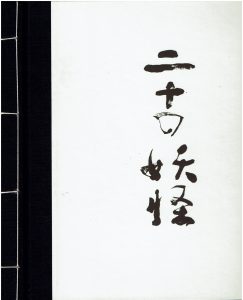 二十四妖怪